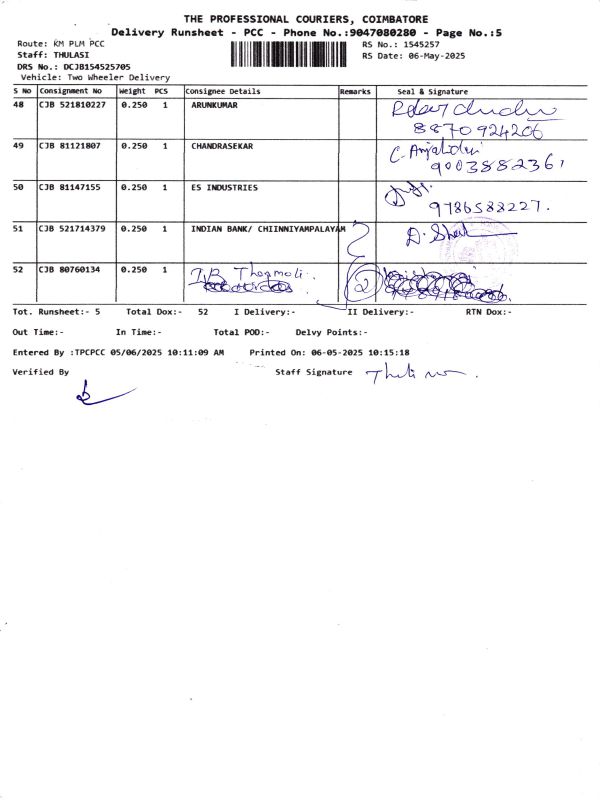 THE PROFESSIONAL COURIERS, COIMBATORE
Delivery Runsheet - PCC - Phone No.:9047080280 - Page No.:5
Route: KM PLM PCC RS No.: 1545257
Staff: THULASI RS Date: 06-May-2025
DRS No.: DCJB154525705
Vehicle: Two Wheeler Delivery
S No Consignment No Weight PCS Consignee Details Remarks Seal & Signature
48 CJB 521810227 0.250 1 ARUNKUMAR
8870924206
49 CJB 81121807 0.250 1 CHANDRASEKAR
9003882361
50 CJB 81147155 0.250 1 ES INDUSTRIES
9786588227.
51 CJB 521714379 0.250 1 INDIAN BANK/ CHIINNIYAMPALAYAM
52 CJB 80760134 0.250 1 2
Tot. Runsheet:- 5 Total Dox:- 52 I Delivery:- II Delivery:- RTN Dox:-
Out Time:- In Time:- Total POD:- Delvy Points:-
Entered By :TPCPCC 05/06/2025 10:11:09 AM Printed On: 06-05-2025 10:15:18
Verified By Staff Signature